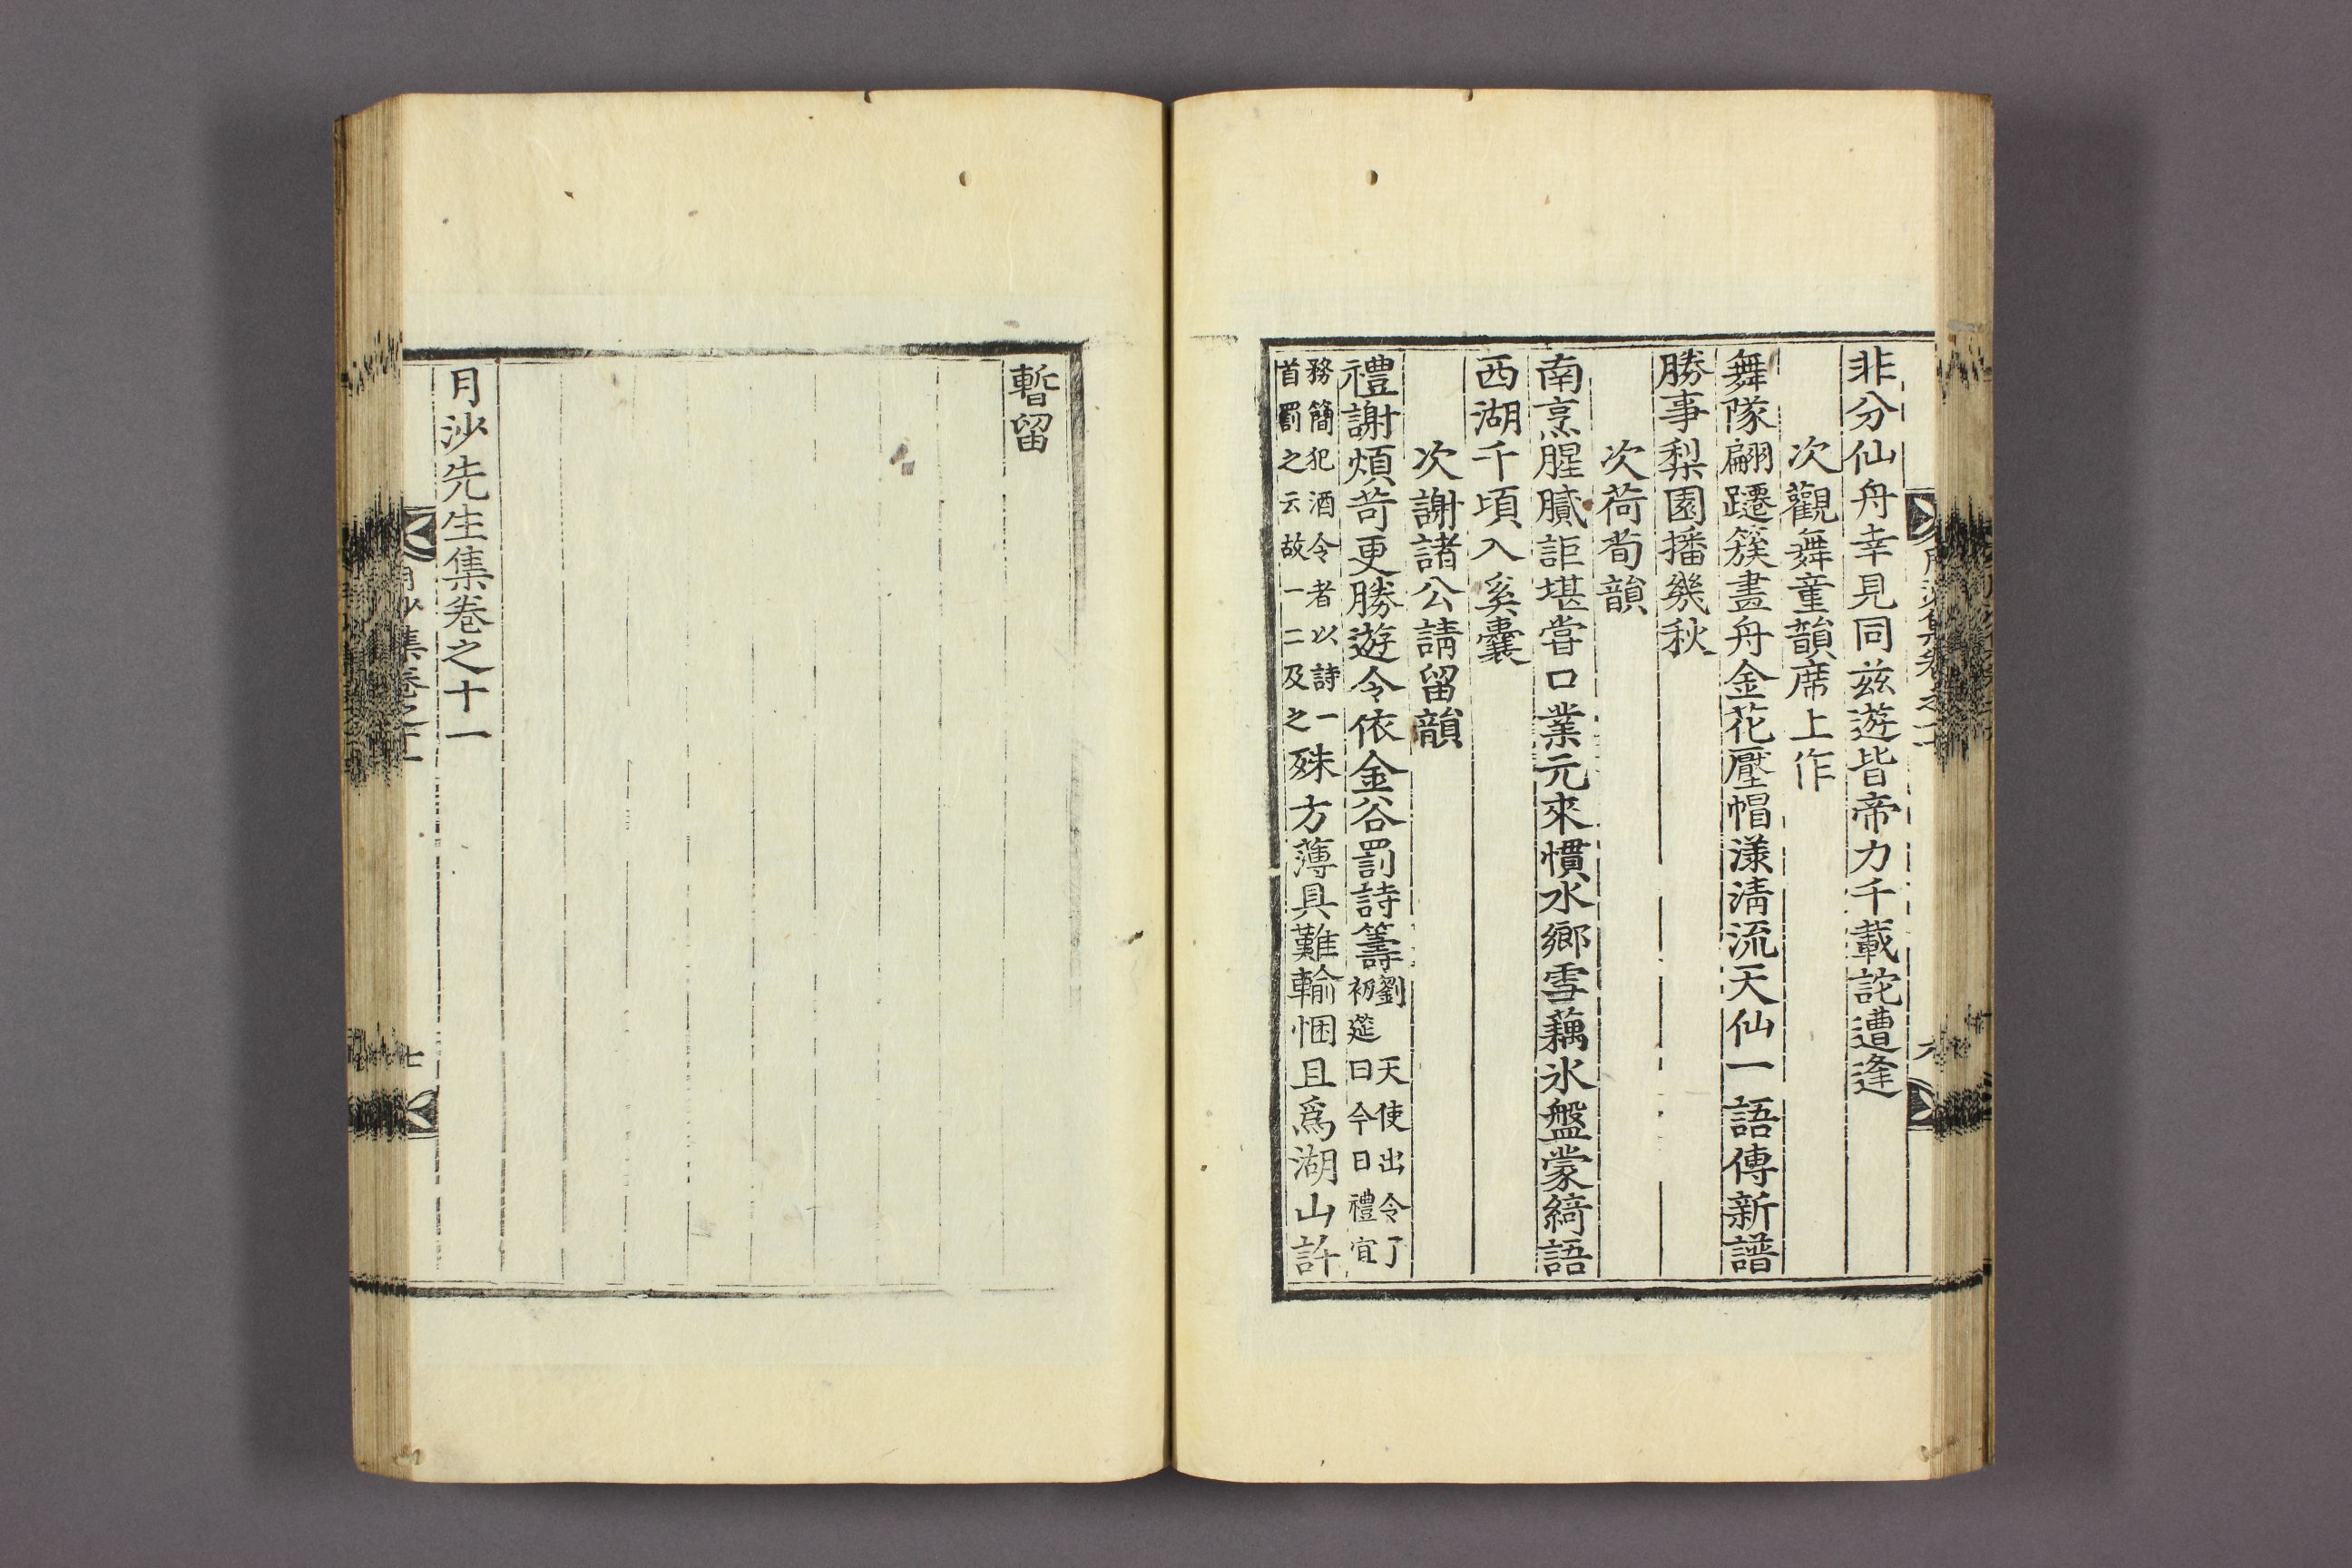 非分仙舟幸見同茲遊皆帝力千載詫遭逢
次觀舞童韻席上作
舞隊翩躚簇畫舟金花壓帽漾淸流天仙一語傳新譜
勝事梨園播幾秋
次荷荀韻
南烹腥膩詎堪嘗口業元來慣水鄉雪藕氷盤蒙綺語
西湖千頃入奚囊
次謝諸公請留韻
禮謝煩苛更勝遊令依金谷罰詩籌劉天使出令丁
初筵曰今日禮宜
務簡犯酒令者以詩一
首罰之云故一二及之殊方薄具難輸悃且爲湖山許
暫留
月沙先生集卷之十一
月沙集卷之十一
七